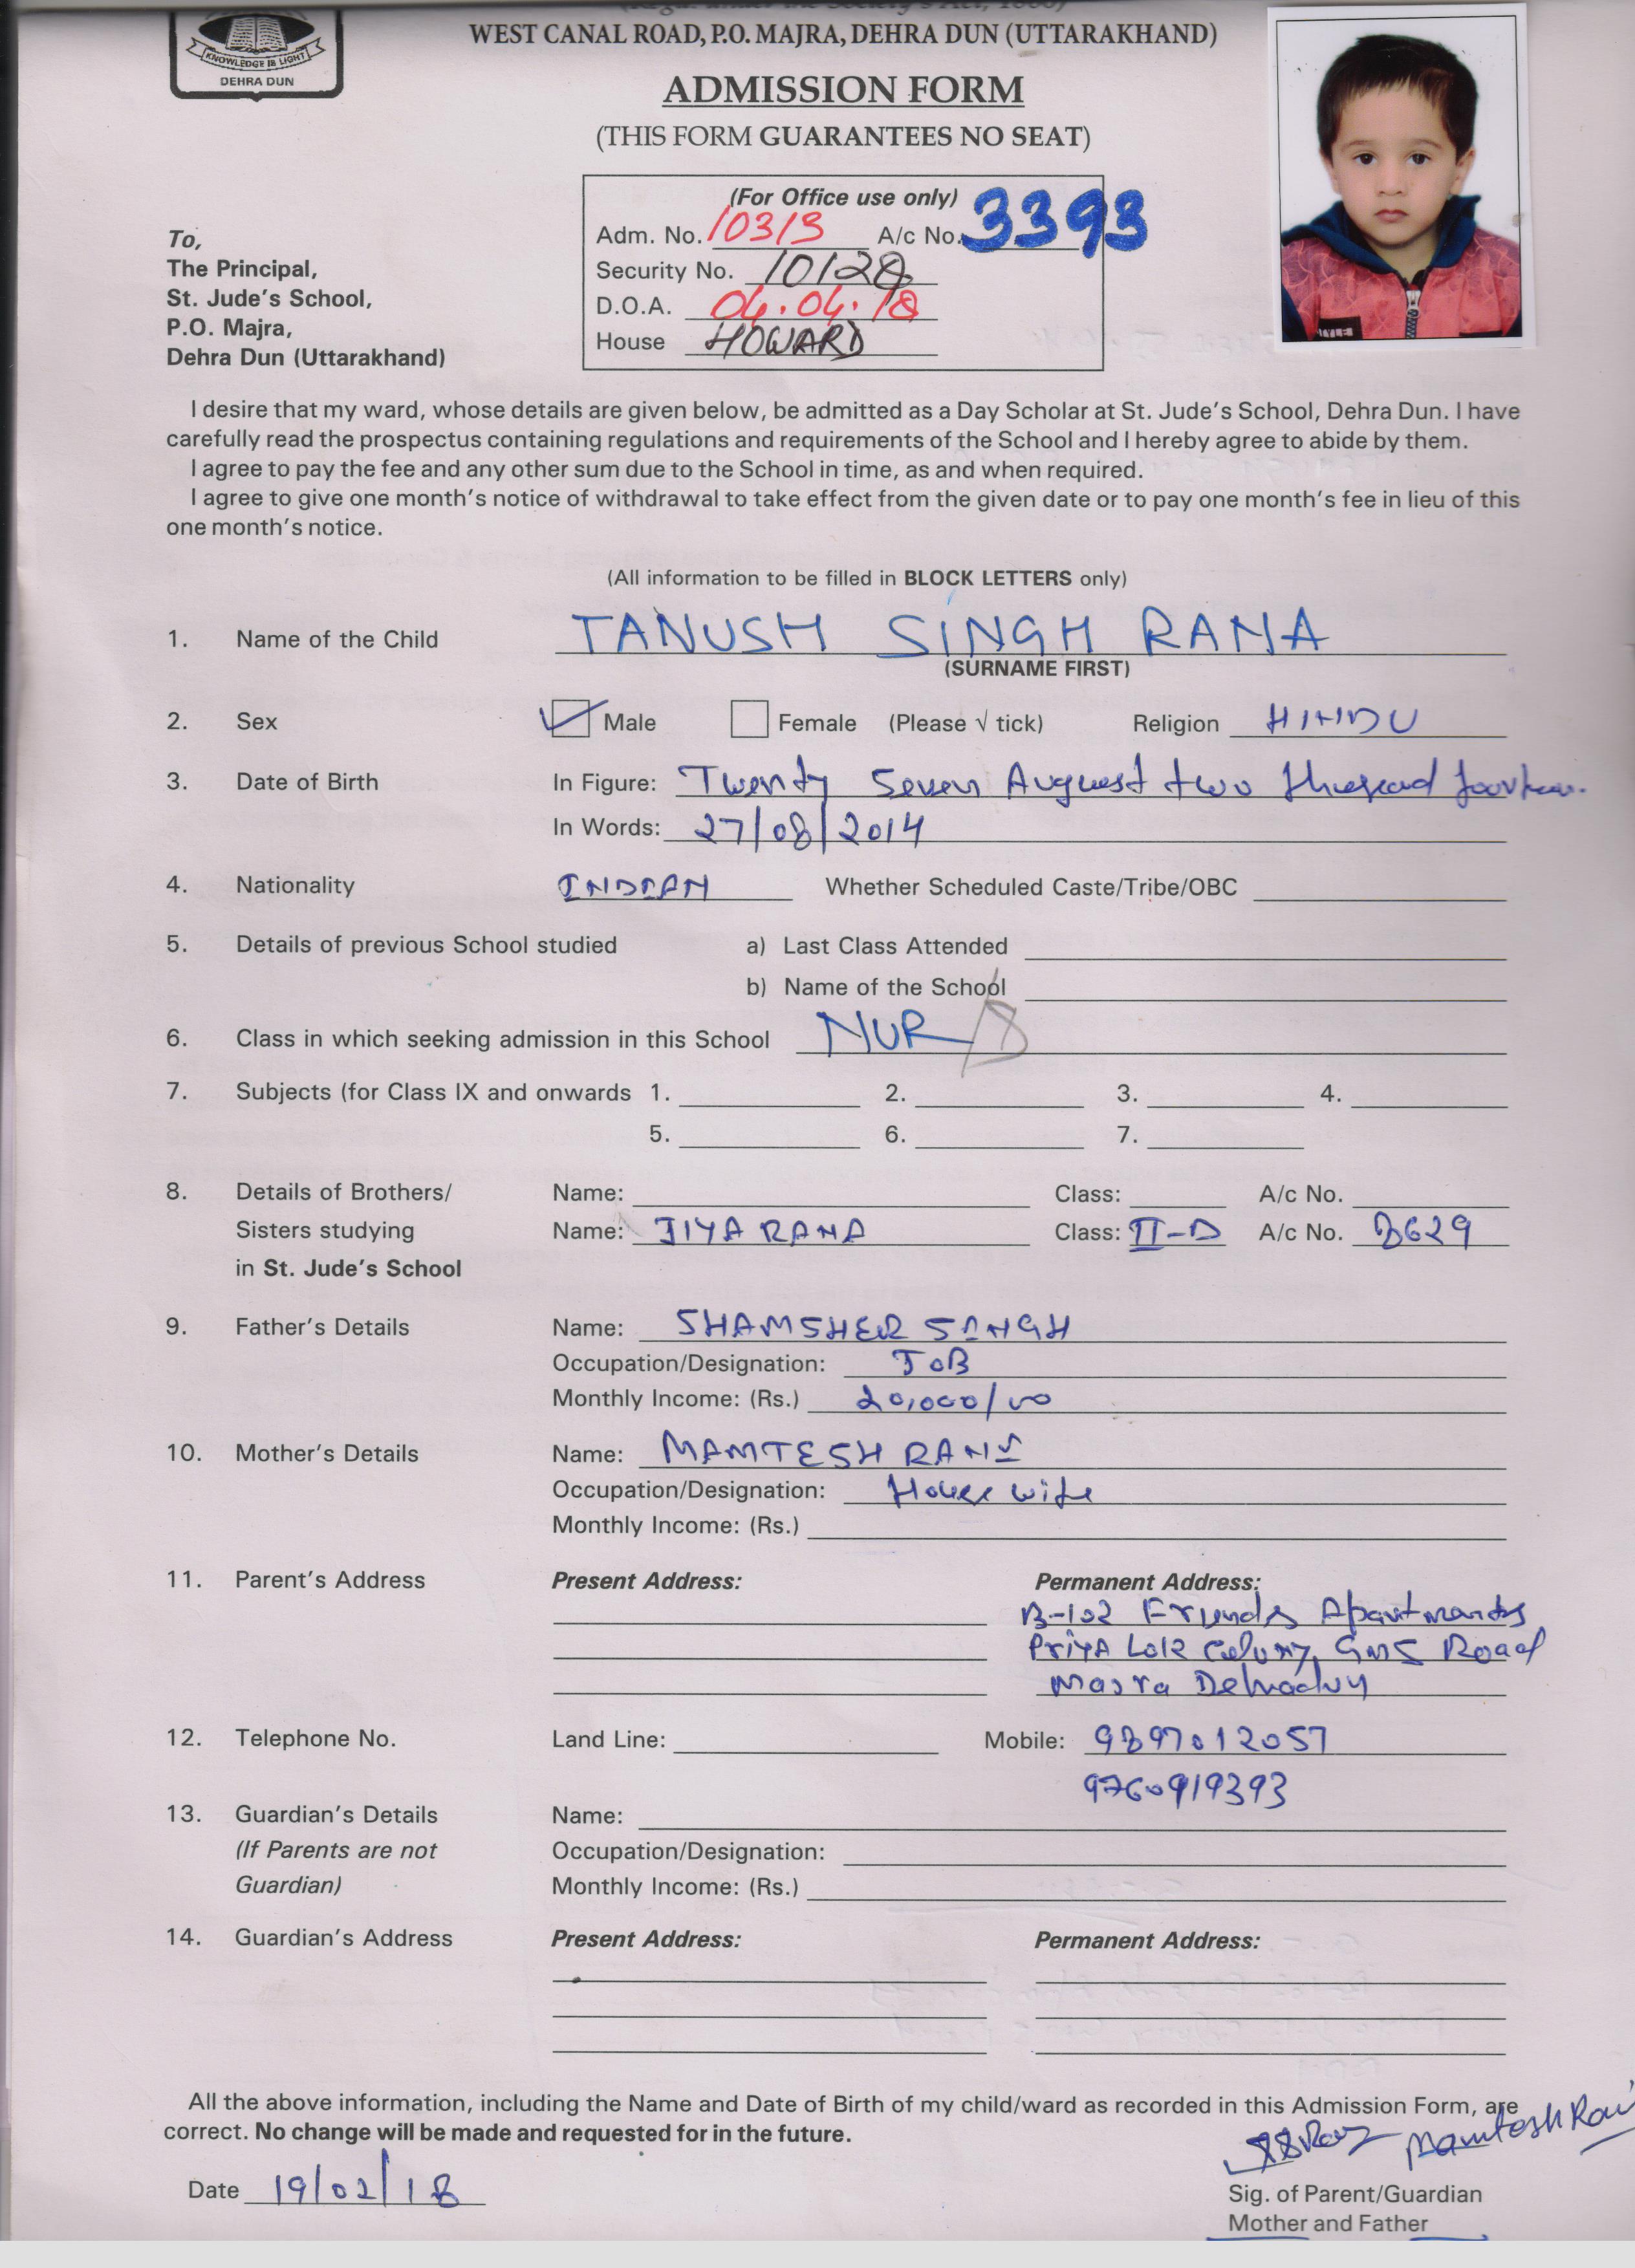 KNOWLEDGE IS LIGHT
DEHRA DUN
WEST CANAL ROAD, P.O. MAJRA, DEHRA DUN (UTTARAKHAND)
ADMISSION FORM
(THIS FORM GUARANTEES NO SEAT)
(For Office use only)
Adm. No. 10313 A/c No. 3393
Security No. 10128
D.O.A. 04.04.18
House HOWARD
To,
The Principal,
St. Jude's School,
P.O. Majra,
Dehra Dun (Uttarakhand)
I desire that my ward, whose details are given below, be admitted as a Day Scholar at St. Jude's School, Dehra Dun. I have
carefully read the prospectus containing regulations and requirements of the School and I hereby agree to abide by them.
I agree to pay the fee and any other sum due to the School in time, as and when required.
I agree to give one month's notice of withdrawal to take effect from the given date or to pay one month's fee in lieu of this
one month's notice.
(All information to be filled in BLOCK LETTERS only)
1. Name of the Child TANUSH SINGH RANA
(SURNAME FIRST)
2. Sex Male Female (Please √ tick) Religion HINDU
3. Date of Birth In Figure: Twenty Seven August two
In Words: 27/08/2014
4. Nationality INDIAN Whether Scheduled Caste/Tribe/OBC
5. Details of previous School studied a) Last Class Attended
b) Name of the School
6. Class in which seeking admission in this School NUR
7. Subjects (for Class IX and onwards 1. 2. 3. 4.
5. 6. 7.
8. Details of Brothers/ Name: Class: A/c No.
Sisters studying Name: JIYA RANA Class: II-D A/c No. 8629
in St. Jude's School
9. Father's Details Name: SHAMSHER SINGH
Occupation/Designation: JOB
Monthly Income: (Rs.) 20,000/00
10. Mother's Details Name: MAMTESH RANI
Occupation/Designation: House wife
Monthly Income: (Rs.)
11. Parent's Address Present Address: Permanent Address:
B-102 Friends Apartments
PRIYA LOK Colony, GMS Road
Majra Dehradun
12. Telephone No. Land Line: Mobile: 9897012057
9760919393
13. Guardian's Details Name:
(If Parents are not Occupation/Designation:
Guardian) Monthly Income: (Rs.)
14. Guardian's Address Present Address: Permanent Address:
All the above information, including the Name and Date of Birth of my child/ward as recorded in this Admission Form, are
correct. No change will be made and requested for in the future.
Mamtesh Rani
Date 19/02/18
Sig. of Parent/Guardian
Mother and Father